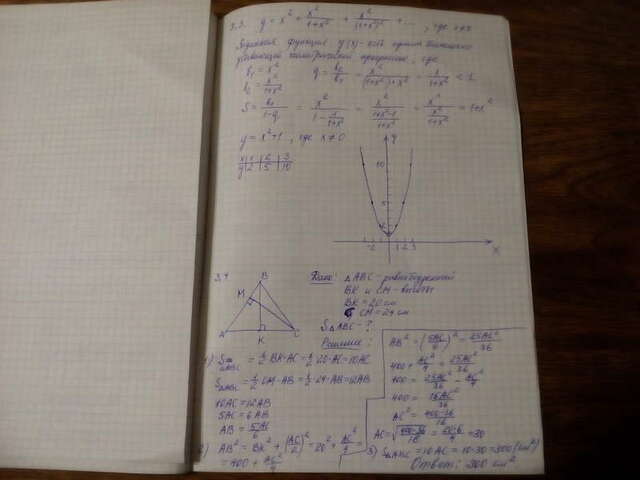 3.3. y = x² + x²/(1+x²) + x²/(1+x²)² + ... , где x≠0
Заданная функция y(x) - есть сумма бесконечно
убывающей геометрической прогрессии, где
b₁ = x²
b₂ = x²/(1+x²)
q = b₂/b₁ = x²/((1+x²)·x²) = 1/(1+x²) < 1
S = b₁/(1-q) = x²/(1 - 1/(1+x²)) = x²/((1+x²-1)/(1+x²)) = x²/(x²/(1+x²)) = 1+x²
y = x²+1, где x≠0
x 1 2 3
y 2 5 10
y
10
5
-2 1 2 3
x
3.4
B
M
A K C
Дано: △ABC - равнобедренный
BK и CM - высоты
BK = 20 см
CM = 24 см
S△ABC - ?
Решение:
1) S△ABC = 1/2 BK·AC = 1/2·20·AC = 10AC
S△ABC = 1/2 CM·AB = 1/2·24·AB = 12AB
10AC = 12AB
5AC = 6AB
AB = 5AC/6
2) AB² = BK² + (AC/2)² = 20² + AC²/4 =
= 400 + AC²/4
AB² = (5AC/6)² = 25AC²/36
400 + AC²/4 = 25AC²/36
400 = 25AC²/36 - AC²/4
400 = 16AC²/36
AC² = 400·36/16
AC = √(400·36/16) = 20·6/4 = 30
3) S△ABC = 10AC = 10·30 = 300 (см²)
Ответ: 300 см²